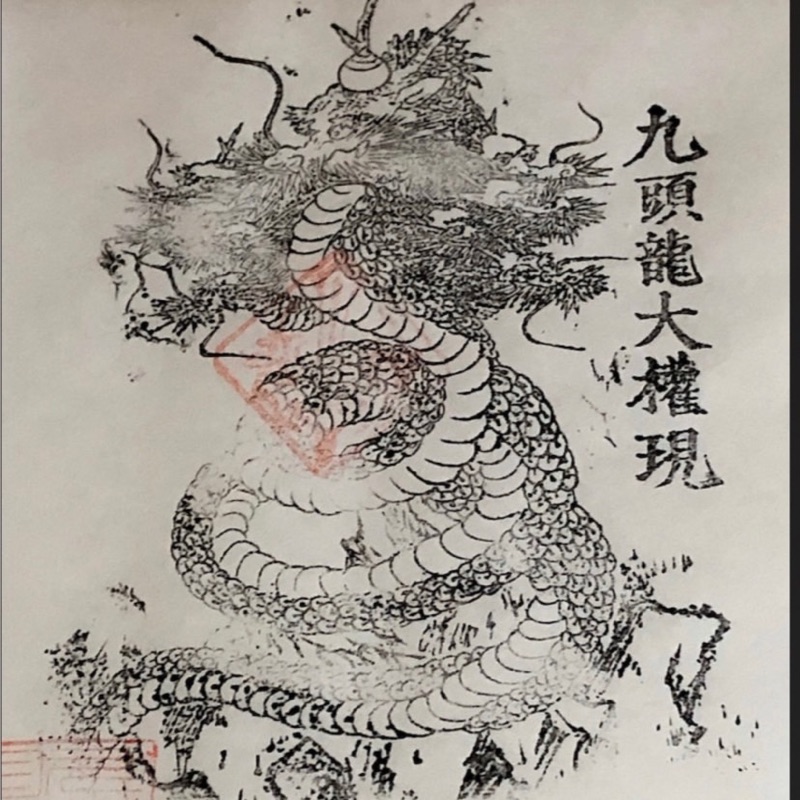 九頭龍大權現